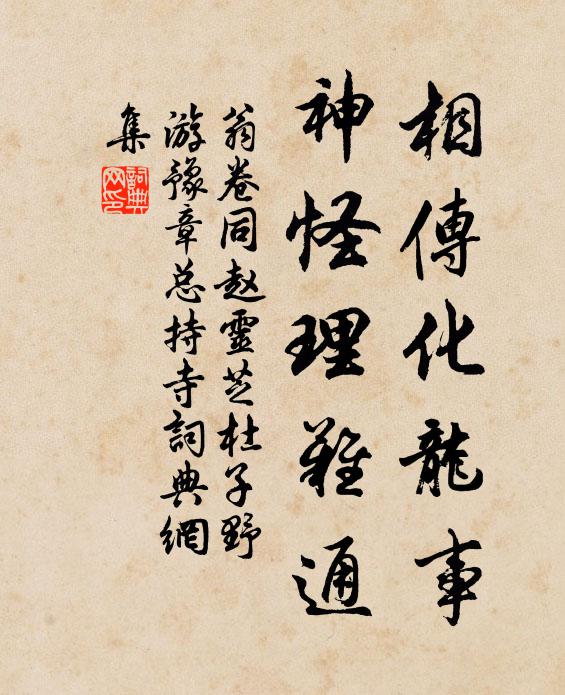 相傳化龍事
神怪理難通
翁卷同赵靈芝杜子野
游豫章总持寺詞典網
集
詞典
网印